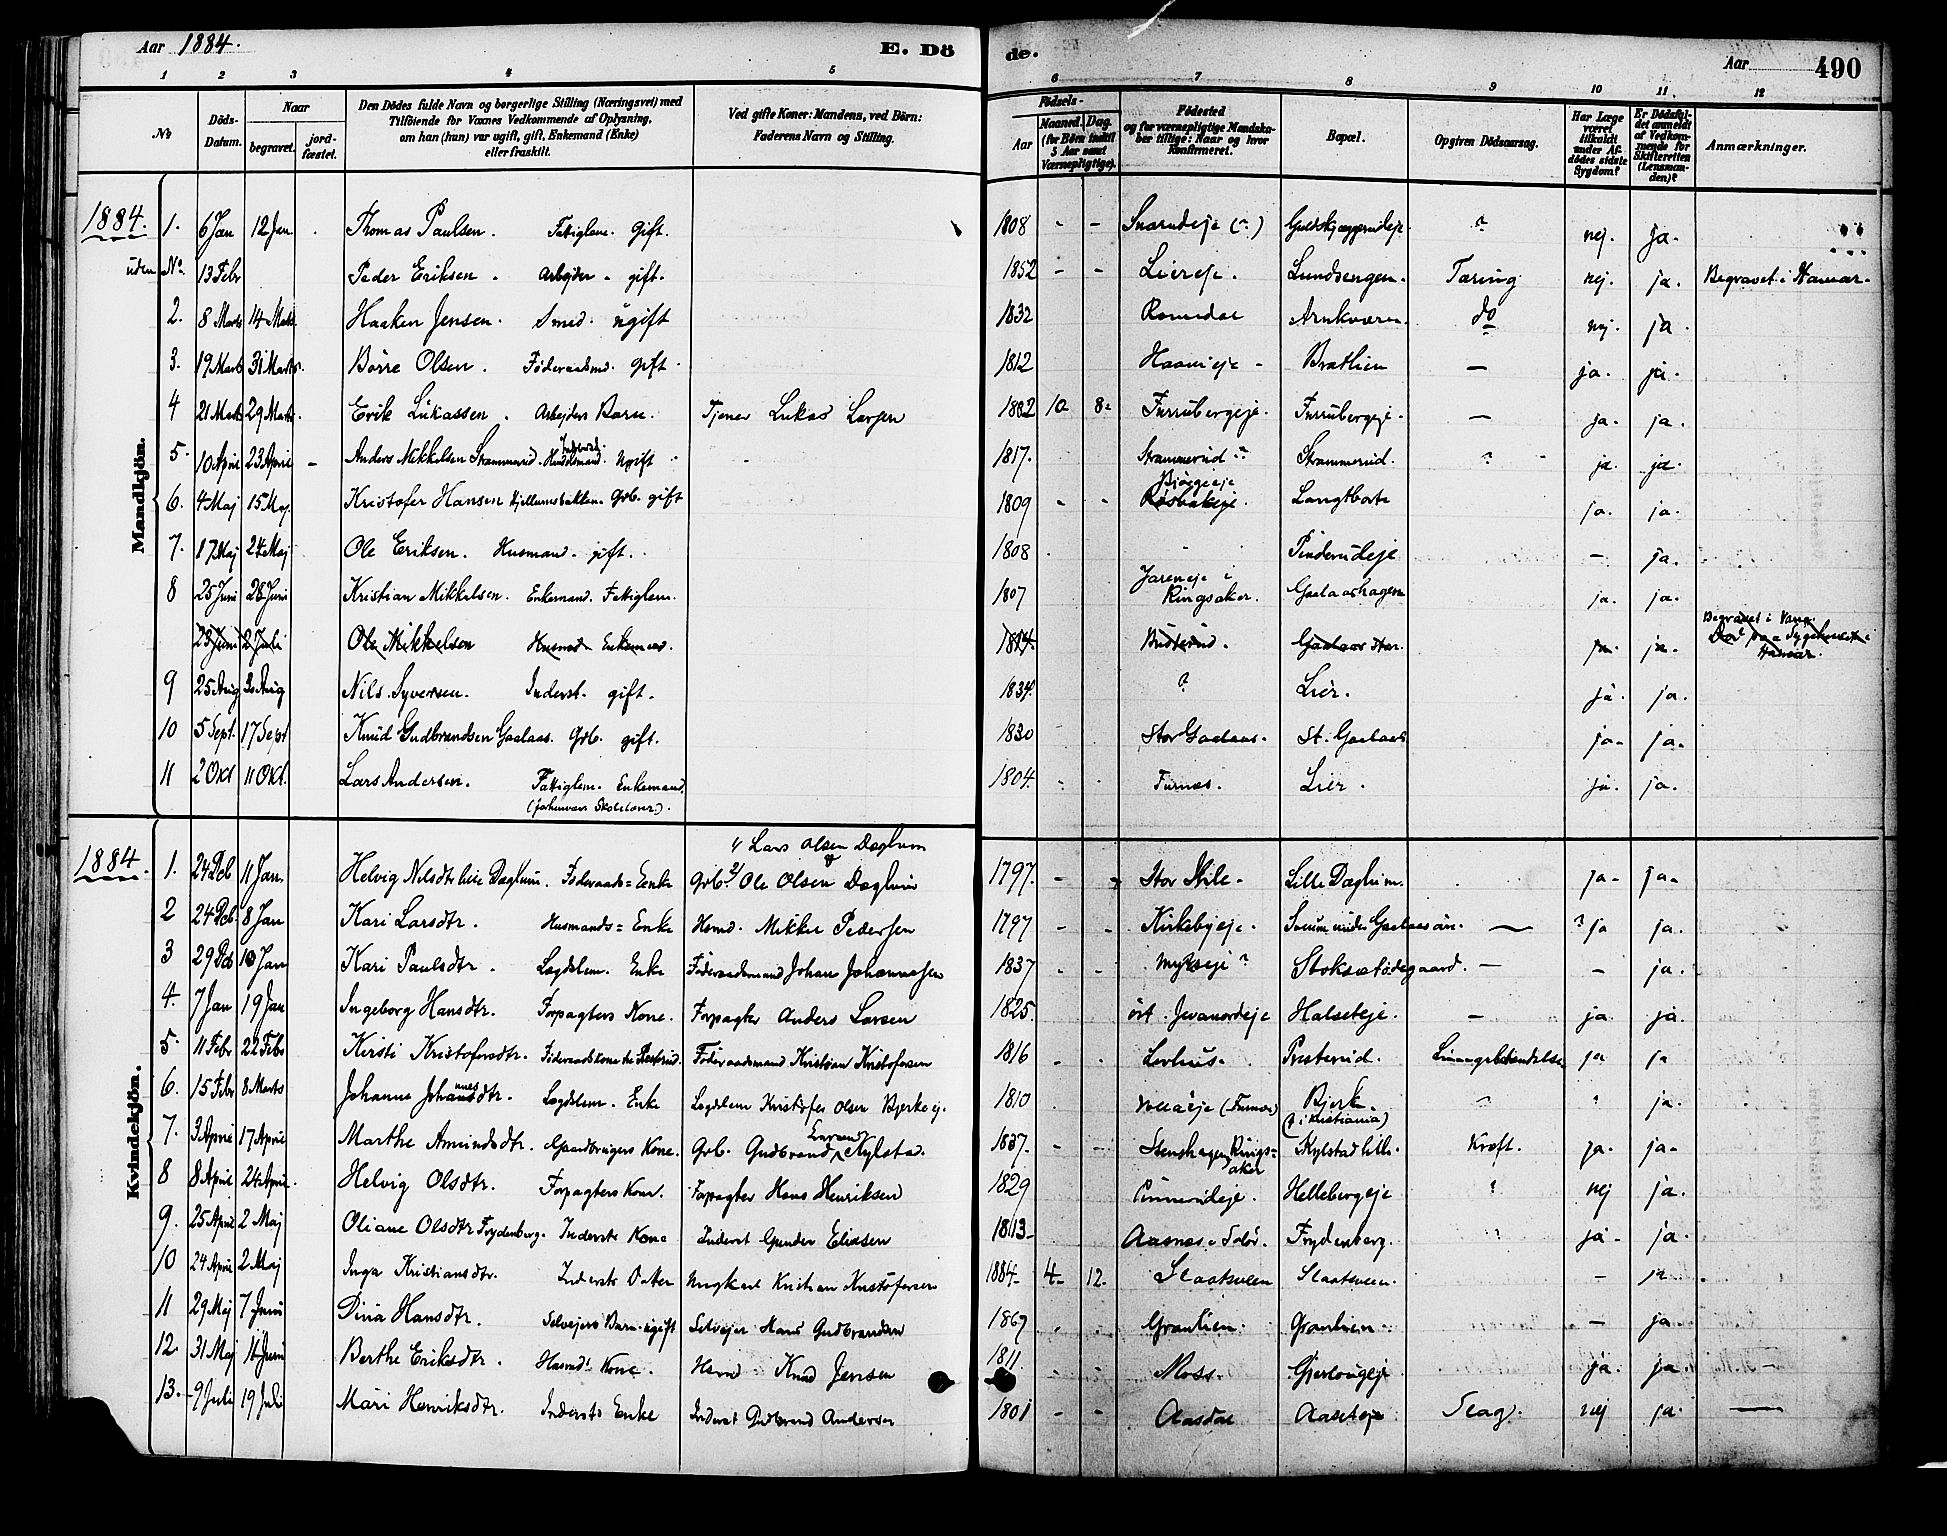 Aar 1884. E. Dö
de. Aar 490
1 2 3 4 5 6 7 8 9 10 11. 12
No Döds-Datum. Naar begravet. jord-fæstet. Den Dödes fulde Navn og borgerlige Stilling (Næringsvei) med Tilföiende for Voxnes Vedkommende af Oplysning, om han (hun) var ugift, gift, Enkemand (Enke) eller fraskilt. Ved gifte Koner: Mandens, ved Börn: Faderens Navn og Stilling. Födsels- Aar Maaned. Dag. (for Börn indtil 5 Aar samt Værnepligtige). Födested og for værnepligtige Mandskaber tillige: Naar og hvor Konfirmeret. Bopæl. Opgiven Dödsaarsag. Har Læge været tilkaldt under Afdödes sidste Sygdom? Er Dödsfaldet anmeldt af Vedkommende for Skifteretten (Lensmanden)? Anmærkninger.
Mandkjön.
1884. 1. 6 Jan 12 Jan. Thomas Paulsen. Fattiglem. Gift. 1808 - - Snarudeje (?) ? nej. ja.
uden No. 13 Febr Peder Eriksen. Arbejder - gift. 1852 - - Liereje. Lundsengen. Tæring nej. ja. Begravet i Hamar.
2. 8 Marts 14 Marts Haaken Jensen. Smed. ugift 1832 Romedal Arnkværn. do nej. ja.
3. 19 Marts 31 Marts. Börre Olsen. Föderaadsmd. Gift. 1812 Bratlien — ja. ja.
4 21 Marts 29 Marts. Erik Lukassen. Arbejders Barn. Tjener Lukas Larsen 1882 10 8 Furubergeje. Furubergeje. — ja. ja.
5. 10 April 23 April - Anders Mikkelsen Strammerud. Husmand. Ugift 1817. Strammerud Strammerud. ? ja. ja.
6. 4 Maj 15 Maj. Kristofer Hansen Gdb. gift 1809 - - Bjørgeeje Langtborte ja. ja.
7. 17 Maj 24 Maj Ole Eriksen. Husmand. gift. 1808 - Pinderudeje — ja.
8 25 Juni 28 Juni Kristian Mikkelsen. Enkemand. Fattiglem. 1807 Jareneje i Ringsaker. Gaalaashagen ja. ja.
23 Juni 2 Juli Ole Mikkelsen Husmd. Enkemand. 1814 Busterud. Gaalaas stor. ja. ja. Begravet i Vang. Død paa Sygehuset i Hamar.
9 25 Aug 30 Aug Nils Syversen. Inderst. gift. 1834. ? Lier. ja. ja.
10 5 Sept. 17 Sept Knud Gudbrandsen Gaalaas. Gdb. gift. 1830 Stor Gaalaas. St. Gaalaas ja. ja.
11 2 Okt 11 Okt. Lars Andersen. Fattiglem. Enkemand. (forhenvær. Skolelærer). 1804. Furnes. Lier. ja. ja.
Kvindekjön.
1884. 1. 24 Dcb 11 Jan. Helvig Nilsdtr lille Daglum. Föderaads=Enke Lars Olsen Daglum Gdb. Ole Olsen Daglum 1797. - Stor Hile. Lille Daglum. ja. ja.
2 24 Dcb 8 Jan Kari Larsdtr. Husmands=Enke Hsmd. Mikkel Pedersen 1797 - - Kirkebyeje. Sveum under Gaalaas — ? ja ja.
3 29 Dcb 10 Jan Kari Paulsdtr. Lægdslem. Enke Föderaadsmand Johan Johannessen 1837 - - ? Stoksetødegaard. — - ja.
4. 7 Jan 19 Jan Ingeborg Hansdtr. Forpagters Kone. Forpagter Anders Larsen 1825. Halseteje. — ja. ja.
5. 11 Febr 22 Febr Kirsti Kristofersdtr. Föderaadskone Föderaadsmand Kristian Kristofersen 1816 - Lovhus. Presterud. Lungebetændelse ja ja
6. 15 Febr 8 Marts Johanne Johannesdtr. Lægdslem. Enke Lægdslem Kristofer Olsen Bjerkeej. 1810 (Furnes) Bjerk. (i Kristiania) ? ja.
7. 3 April 17 April Marthe Amundsdtr. Gaardbrugers Kone. Gdb. Gudbrand Kylstad. 1837. - - Stenshagen Ringsaker Kylstad lille. Kræft. ja. ja.
8 8 April 24 April. Helvig Olsdtr. Forpagters Kone. Forpagter Hans Henriksen 1829 Pinnerudeje. Hellebergeje ? nej ja.
9. 25 April 2 Maj Oliane Olsdtr Frydenberg. Inderst Kone Inderst Gunder Eliesen 1813 Aasnes i Solör. Frydenberg. ? ja. ja.
10 24 April 2 Maj Inga Kristiansdtr. Inderst Datter Ungkarl Kristian Kristofersen 1884 4 12. Slaatsveen Slaatsveen. — ja.
11 29 Maj 7 Juni Dina Hansdtr. Selvejers Barn. ugift Selvejer Hans Gudbrandsen 1867 Granlien. Granlien. — ja.
12. 31 Maj 11 Juni Berthe Eriksdtr. Husmds Kone. Hsmd Knud Jensen 1811 - - Moss. ja. ja. —
13. 9 Juli 19 Juli Mari Henriksdtr. Inderst Enke Inderst Gudbrand Andersen 1801 - - Aasdal Aaseteje Slag. nej ja. —